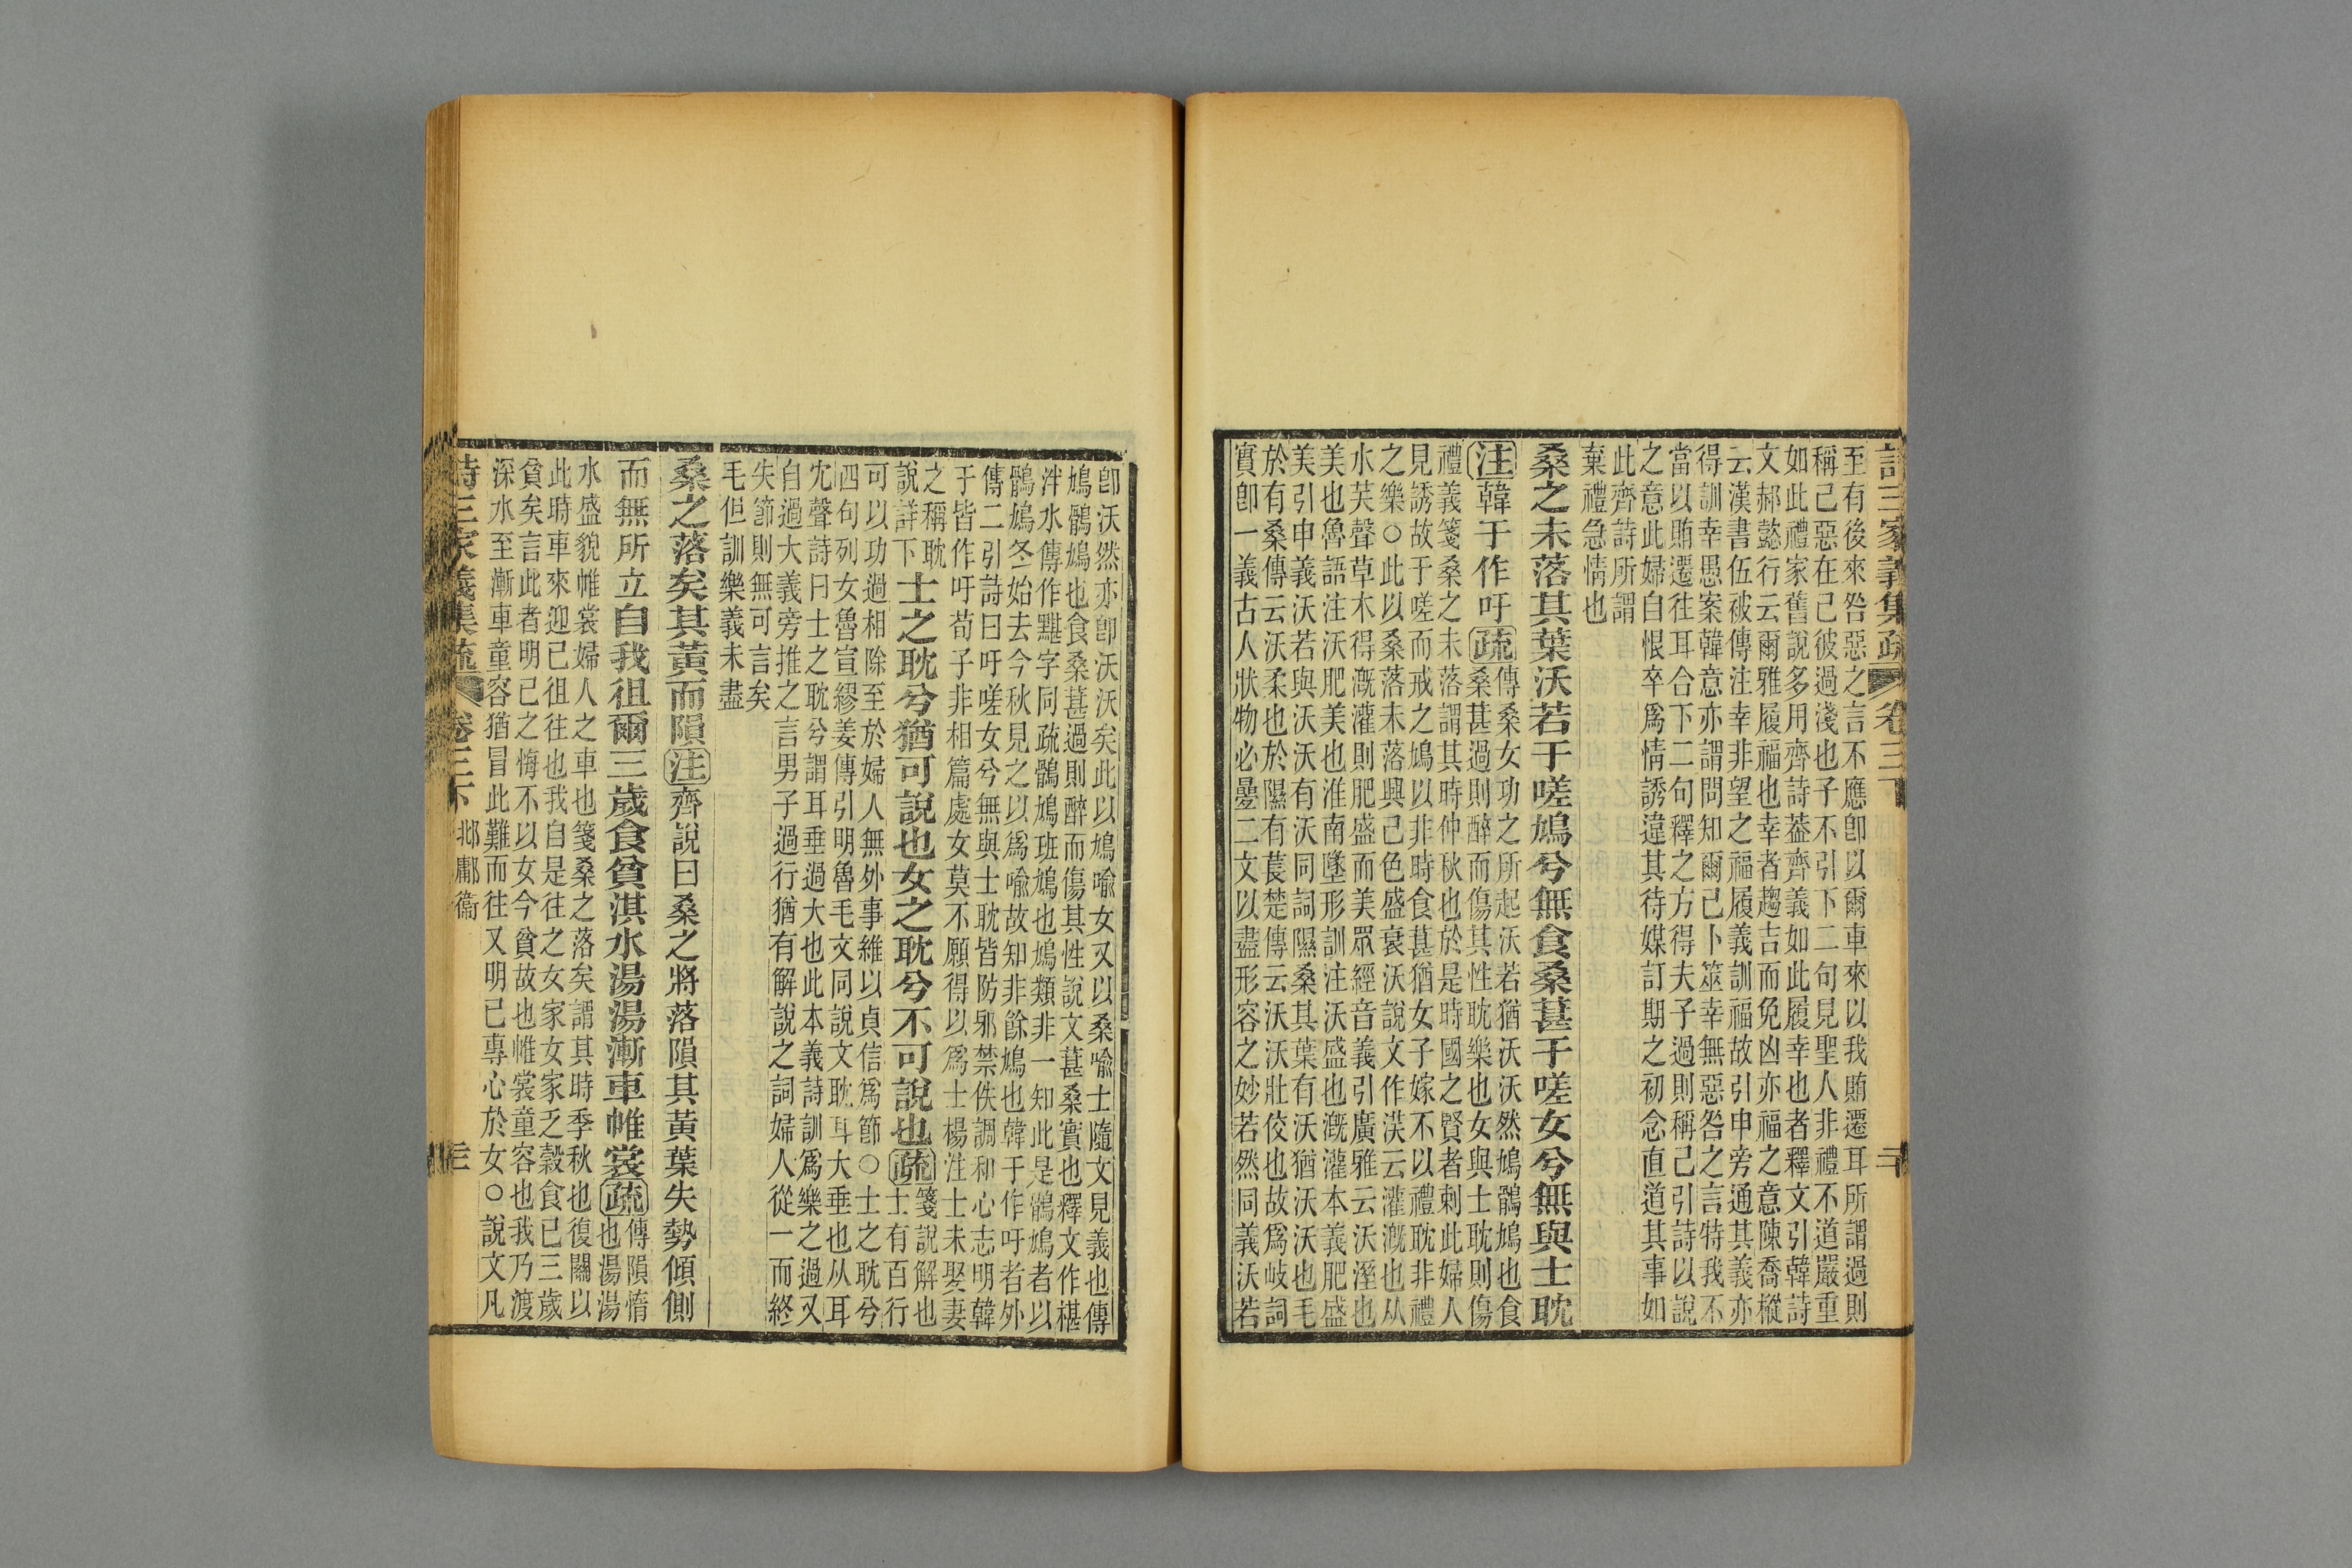 詩三家義集疏 卷三下 二
至有後來咎惡之言不應卽以爾車來以我賄遷耳所謂過則
稱己惡在己彼過淺也子不引下二句見聖人非禮不道嚴重
如此禮家舊說多用齊詩葢齊義如此履幸也者釋文引韓詩
文郝懿行云爾雅履福也幸者趨吉而免凶亦福之意陳喬樅
云漢書伍被傳注幸非望之福履義訓福故引申旁通其義亦
得訓幸愚案韓意亦謂問知爾已卜筮幸無惡咎之言特我不
當以賄遷往耳合下二句釋之方得夫子過則稱己引詩以說
之意此婦自恨卒爲情誘違其待媒訂期之初念直道其事如
此齊詩所謂
棄禮急情也
桑之未落其葉沃若于嗟鳩兮無食桑葚于嗟女兮無與士耽
注韓于作吁疏
傳桑女功之所起沃若猶沃沃然鳩鶻鳩也食
桑葚過則醉而傷其性耽樂也女與士耽則傷
禮義箋桑之未落謂其時仲秋也於是時國之賢者刺此婦人
見誘故于嗟而戒之鳩以非時食葚猶女子嫁不以禮耽非禮
之樂○此以桑落未落興己色盛衰沃說文作渂云灌漑也从
水芺聲草木得漑灌則肥盛而美眾經音義引廣雅云沃溼也
美也魯語注沃肥美也淮南墬形訓注沃盛也漑灌本義肥盛
美引申義沃若與沃沃有沃同詞隰桑其葉有沃猶沃沃也毛
於有桑傳云沃柔也於隰有萇楚傳云沃沃壯佼也故爲岐詞
實卽一義古人狀物必曡二文以盡形容之妙若然同義沃若
卽沃然亦卽沃沃矣此以鳩喻女又以桑喻士隨文見義也傳
鳩鶻鳩也食桑葚過則醉而傷其性說文葚桑實也釋文作椹
泮水傳作黮字同疏鶻鳩班鳩也鳩類非一知此是鶻鳩者以
鶻鳩冬始去今秋見之以爲喻故知非餘鳩也韓于作吁者外
傳二引詩曰吁嗟女兮無與士耽皆防邪禁佚調和心志明韓
于皆作吁荀子非相篇處女莫不願得以爲士楊注士未娶妻
之稱耽
說詳下
士之耽兮猶可說也女之耽兮不可說也疏
箋說解也
士有百行
可以功過相除至於婦人無外事維以貞信爲節○士之耽兮
四句列女魯宣繆姜傳引明魯毛文同說文耽耳大垂也从耳
冘聲詩曰士之耽兮謂耳垂過大也此本義詩訓爲樂之過又
自過大義旁推之言男子過行猶有解說之詞婦人從一而終
失節則無可言矣
毛但訓樂義未盡
桑之落矣其黃而隕注齊說曰桑之將落隕其黃葉失勢傾側
而無所立自我徂爾三歲食貧淇水湯湯漸車帷裳疏
傳隕惰
也湯湯
水盛貌帷裳婦人之車也箋桑之落矣謂其時季秋也復關以
此時車來迎己徂往也我自是往之女家女家乏穀食已三歲
貧矣言此者明己之悔不以女今貧故也帷裳童容也我乃渡
深水至漸車童容猶冒此難而往又明己專心於女○說文凡
詩三家義集疏 卷三下 邶鄘衞 三